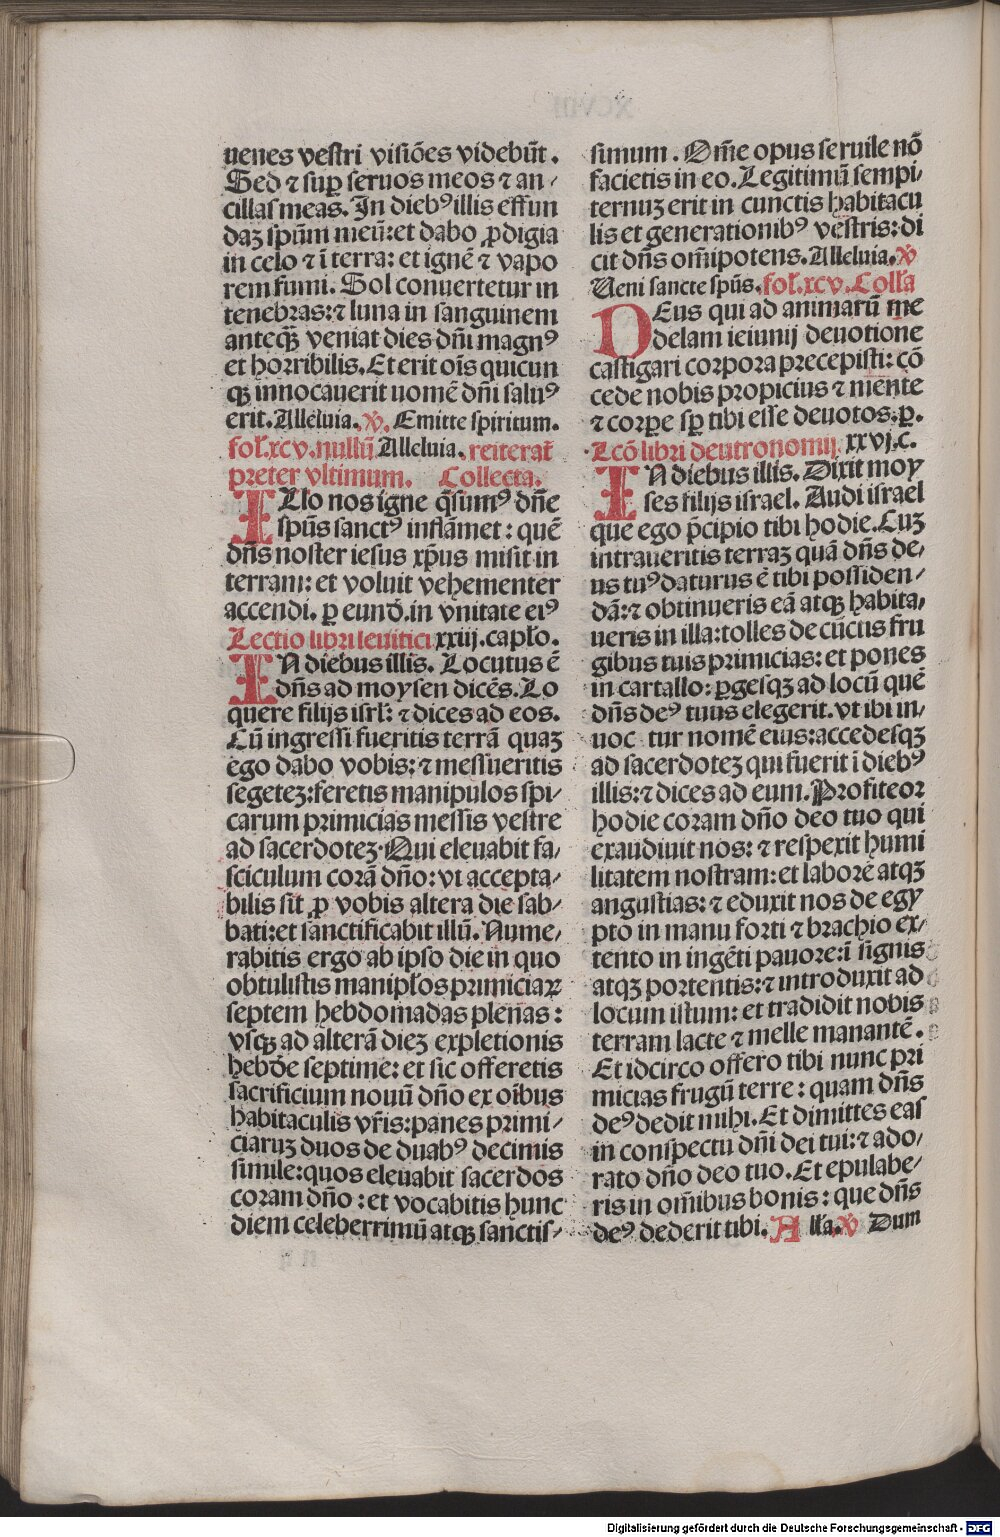 uenes vestri visiões videbũt.
Sed ⁊ suꝑ seruos meos ⁊ an-
cillas meas. In dieb⁹ illis effun
daȝ spũm meũ: et dabo ꝓdigia
in celo ⁊ ĩ terra: et ignẽ ⁊ vapo
rem fumi. Sol conuertetur in
tenebras: ⁊ luna in sanguinem
anteqꝫ̃ veniat dies dñi magn⁹
et horribilis. Et erit oĩs quicun
qꝫ innocauerit uomẽ dñi salu⁹
erit. Alleluia. ℣. Emitte spiritum.
fol. xcv. nullũ Alleluia. reiterat̃
preter vltimum. Collecta.
ILlo nos igne q̃sum⁹ dñe
spũs sanct⁹ inflãmet: quẽ
dñs noster iesus xp̃us misit in
terram: et voluit vehementer
accendi. ꝑ eund̃. in vnitate ei⁹
Lectio libri leuitici xxiij. capło.
IN diebus illis. Locutus ẽ
dñs ad moysen dicẽs. Lo
quere filijs isrł: ⁊ dices ad eos.
Cũ ingressi fueritis terrã quaȝ
ego dabo vobis: ⁊ messueritis
segeteȝ: feretis manipulos spi-
carum primicias messis vestre
ad sacerdoteȝ. Qui eleuabit fa-
sciculum corã dño: vt accepta-
bilis sit ꝓ vobis altera die sab-
bati: et sanctificabit illũ. Nume-
rabitis ergo ab ipso die in quo
obtulistis manipłos primiciaꝝ
septem hebdomadas plenas:
vsqꝫ ad alterã dieȝ expletionis
hebđe septime: et sic offeretis
sacrificium nouũ dño ex oĩbus
habitaculis vr̃is: panes primi-
ciaruȝ duos de duab⁹ decimis
simile: quos eleuabit sacerdos
coram dño: et vocabitis hunc
diem celeberrimũ atqꝫ sanctis-
simum. Om̃e opus seruile nõ
facietis in eo. Legitimũ sempi-
ternuȝ erit in cunctis habitacu
lis et generationib⁹ vestris: di
cit dñs om̃ipotens. Alleluia. ℣
Ueni sancte spũs. fol. xcv. Colła
DEus qui ad animarũ me
delam ieiunij deuotione
castigari corpora precepisti: cõ
cede nobis propicius ⁊ mente
⁊ corꝑe sꝑ tibi esse deuotos. ꝑ.
Lcõ libri deutronomij. xxvj. c.
IN diebus illis. Dixit moy
ses filijs israel. Audi israel
que ego p̃cipio tibi hodie. Cuȝ
intraueritis terraȝ quã dñs de-
us tu⁹ daturus ẽ tibi possiden-
dã: ⁊ obtinueris eã atqꝫ habita-
ueris in illa: tolles de cũctis fru
gibus tuis primicias: et pones
in cartallo: ꝑgesqꝫ ad locũ quẽ
dñs de⁹ tuus elegerit. vt ibi in-
uoc tur nomẽ eius: accedesqꝫ
ad sacerdoteȝ qui fuerit ĩ dieb⁹
illis: ⁊ dices ad eum. Profiteor
hodie coram dño deo tuo qui
exaudiuit nos: ⁊ respexit humi
litatem nostram: et laborẽ atqꝫ
angustias: ⁊ eduxit nos de egy
pto in manu forti ⁊ brachio ex-
tento in ingẽti pauore: ĩ signis
atqꝫ portentis: ⁊ introduxit ad
locum istum: et tradidit nobis
terram lacte ⁊ melle manantẽ.
Et idcirco offero tibi nunc pri
micias frugũ terre: quam dñs
de⁹ dedit mihi. Et dimittes eas
in conspectu dñi dei tui: ⁊ ado-
rato dño deo tuo. Et epulabe-
ris in om̃ibus bonis: que dñs
de⁹ dederit tibi. Alła. ℣ Dum
Digitalisierung gefördert durch die Deutsche Forschungsgemeinschaft - DFG